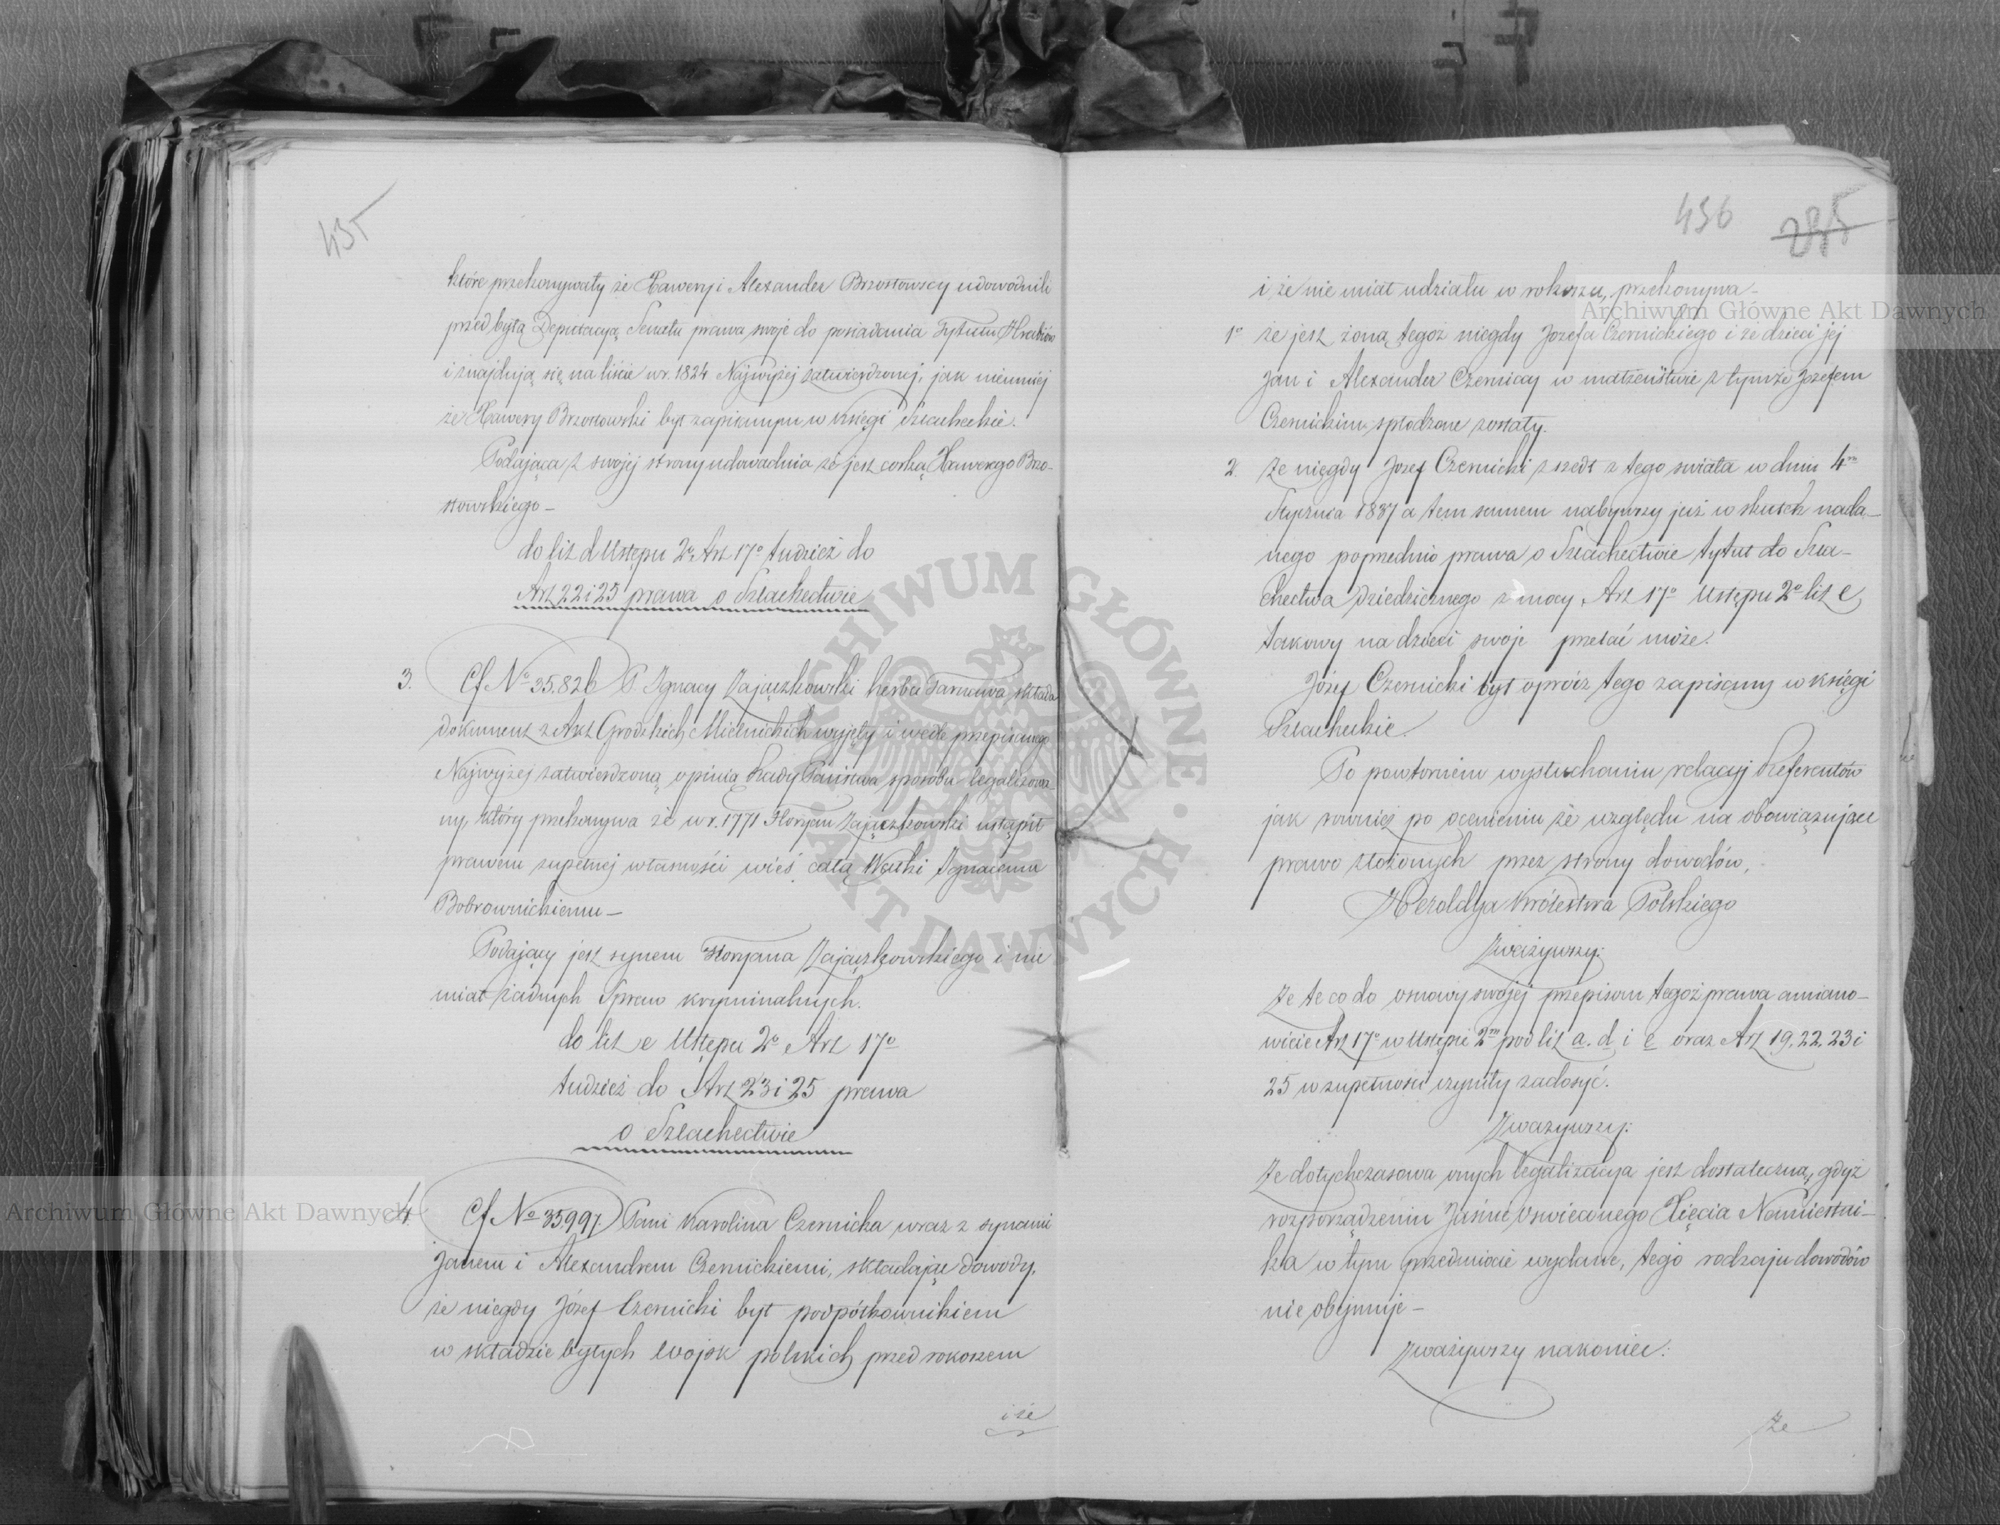 435
które przekonywały że Xawery i Alexander Brzostowscy udowodnili
przed byłą Deputacyą Senatu prawa swoje do posiadania Tytułu Hrabiów
i znajdują się na liście w r. 1824 Najwyżej zatwierdzonej, jak niemniej
że Xawery Brzostowski był zapisanym w księgi Szlacheckie.
Podająca z swojej strony udowadnia że jest corką Xawerego Brzo-
stowskiego –
do lit d Ustępu 2o Art 17o tudzież do
Art 22 i 25 prawa o Szlachectwie
3. Cf No 35.826 P. Ignacy Zajączkowski herbu Tarnawa, składa
dokument z Akt Grodzkich Mielnickich wyjęty i wedle przepisanego
Najwyżej zatwierdzoną opinią Rady Państwa sposobu legalizowa-
ny, który przekonywa że w r. 1771 Floryan Zajączkowski ustąpił
prawem zupełnej własności wieś całą Ignacemu
Bobrownickiemu –
Podający jest synem Floryana Zajączkowskiego i nie
miał żadnych Spraw kryminalnych.
do lit e Ustępu 2o Art 17o
tudzież do Art 23 i 25 prawa
o Szlachectwie
4. Cf No 35997 Pani Karolina Czernicka wraz z synami
Janem i Alexandrem Czernickiemi, składając dowody,
że niegdy Józef Czernicki był podpółkownikiem
w składzie byłych Wojsk polskich przed rokoszem
i że
436
285
i że nie miał udziału w rokoszu, przekonywa –
1o że jest żoną tegoż niegdy Jozefa Czernickiego i że dzieci jej
Jan i Alexander Czerniccy w małżeństwie z tymże Jozefem
Czernickim spłodzone zostały.
2 że niegdy Jozef Czernicki zszedł z tego świata w dniu 4m
Stycznia 1837 a tem samem nabywszy już w skutek nada-
nego poprzednio prawa o Szlachectwie tytuł do Szla-
chectwa dziedzicznego z mocy Art 17o Ustępu 2o lit e
takowy na dzieci swoje przelać może.
Józef Czernicki był oprócz tego zapisany w księgi
Szlacheckie.
Po powtórnem wysłuchaniu relacyj Referentów
jak również po ocenieniu ze względu na obowiązujące
prawo złożonych przez strony dowodów,
Heroldya Królestwa Polskiego
Zważywszy:
Że te co do osnowy swojej przepisom tegoż prawa a miano-
wicie Art 17o w Ustępie 2m pod lit a. d i e oraz Art 19, 22, 23 i
25 w zupełności czyniły zadosyć.
Zważywszy:
Że dotychczasowa onych legalizacya jest dostateczną, gdyż
rozporządzeniu Jaśnie Oświeconego Xięcia Namiestni-
ka w tym przedmiocie wydane, tego rodzaju dowodów
nie obejmuje –
Zważywszy nakoniec:
Że
Archiwum Główne Akt Dawnych
Archiwum Główne Akt Dawnych
ARCHIWUM GŁÓWNE AKT DAWNYCH